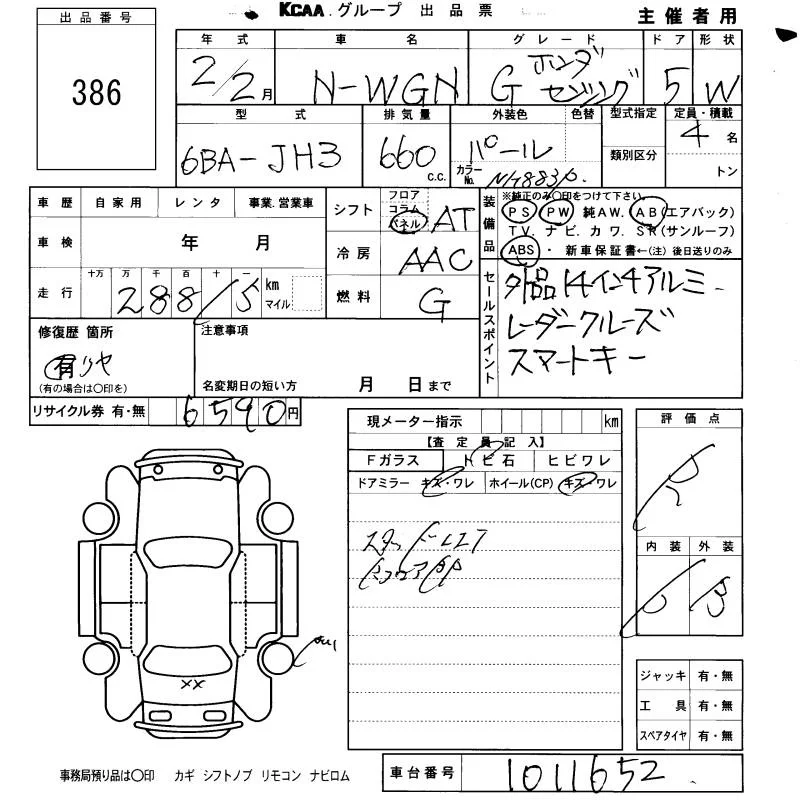 KCAA.グループ 出品票 主催者用
出品番号
386
年式 車名 グレード ドア 形状
2/2月 N-WGN G ホンダセンシング 5 W
型式 排気量 外装色 色替 型式指定 定員・積載
6BA-JH3 660 C.C. パール カラーNo. NH883P. 類別区分 4名
トン
車歴 自家用 レンタ 事業.営業車
車検 年 月
十万 万 千 百 十 一
走行 288/5 km マイル
シフト フロア コラム パネル AT
冷房 AAC
燃料 G
装備品
※純正のみ〇印をつけて下さい。
PS PW 純AW. AB(エアバック)
TV. ナビ. カワ. SR(サンルーフ)
ABS ・ 新車保証書←(注) 後日送りのみ
セールスポイント
外品14インチアルミ
レーダークルーズ
スマートキー
修復歴 箇所
有
(有の場合は〇印を)
注意事項
名変期日の短い方 月 日まで
リサイクル券 有・無 6590円
現メーター指示 km
【査定員記入】
Fガラス トビ石 ヒビワレ
ドアミラー キズ・ワレ ホイール(CP) キズ・ワレ
評価点
内装 外装
B
XX
ジャッキ 有・無
工具 有・無
スペアタイヤ 有・無
事務局預り品は〇印 カギ シフトノブ リモコン ナビロム
車台番号 1011652